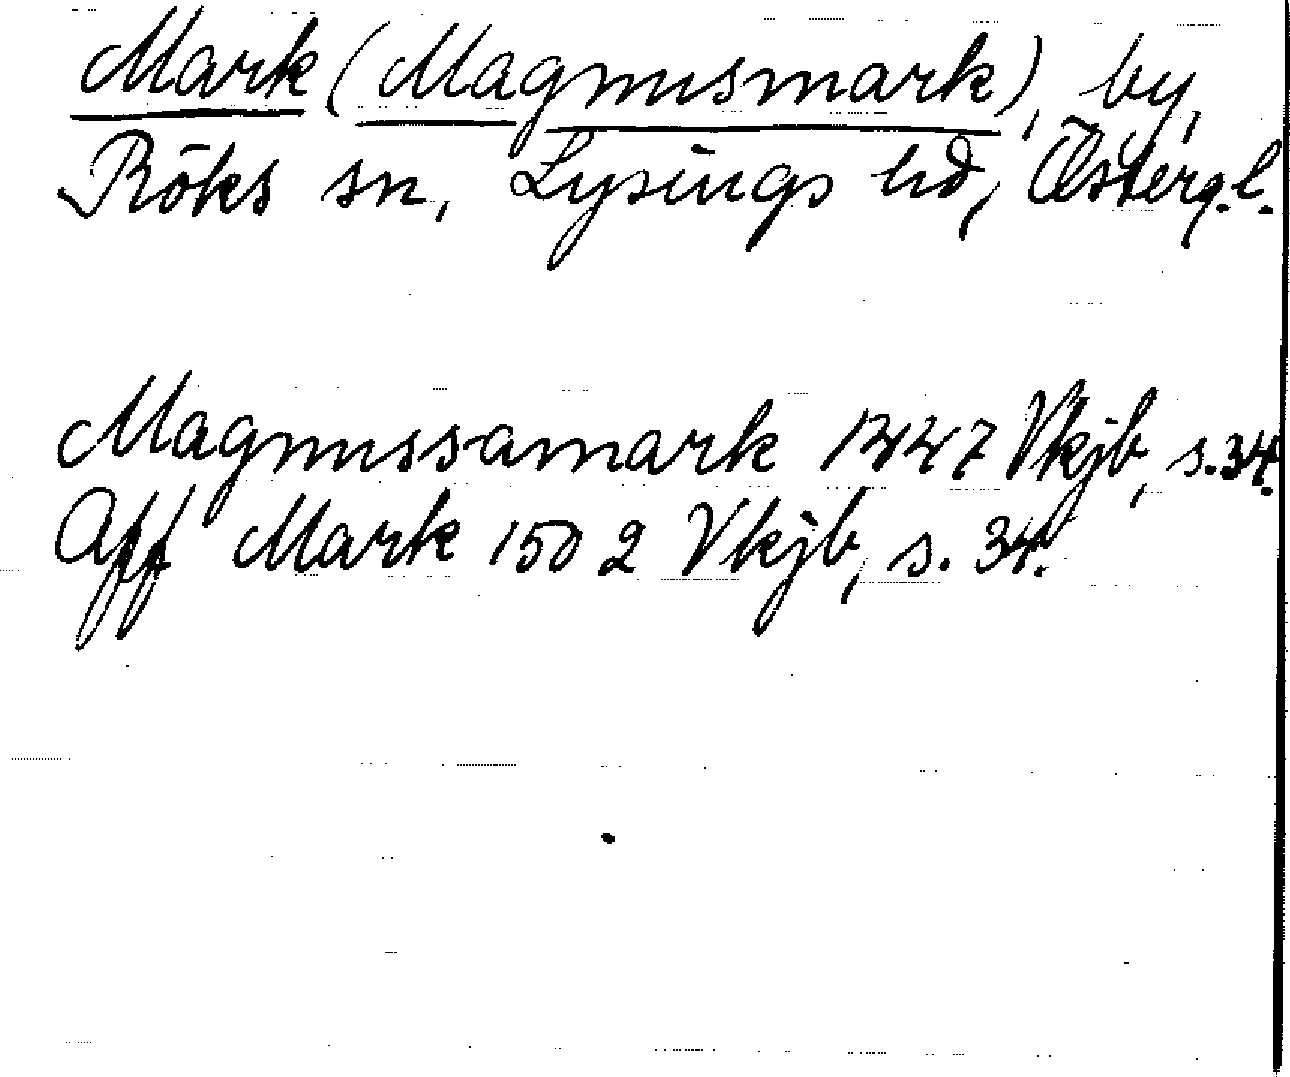 Mark (Magnusmark), by,
Röks sn, Lysings hd, Österg.l.
Magnussamark 1447 Vkjb, s. 34.
Aff Mark 1502 Vkjb, s. 34.